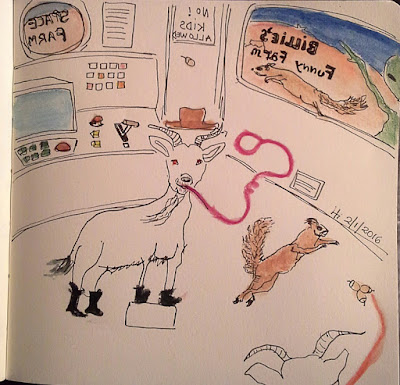 SPACE
FARM
NO!
KIDS
ALLOWED
BILLIE'S
Funny
Farm
2/1/2016